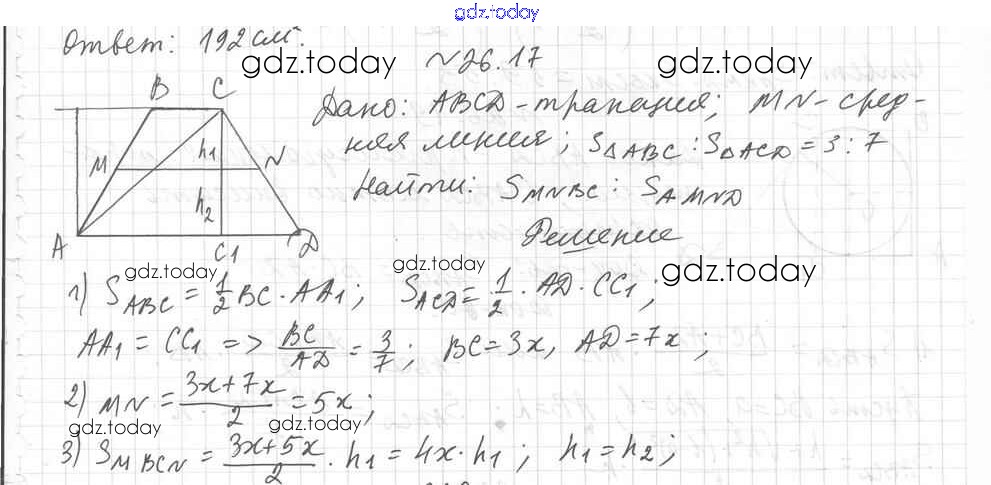 gdz.today
Ответ: 192 см².
gdz.today
№26.17
gdz.today
B C
Дано: ABCD-трапеция; MN-сред-
няя линия; S△ABC : S△ACD = 3 : 7
M h1 N
Найти: SMNBC : SAMND
h2
Решение
A C1 D
gdz.today gdz.today gdz.today
1) SABC = 1/2 BC · AA1; SACD = 1/2 · AD · CC1;
AA1 = CC1 => BC/AD = 3/7; BC = 3x, AD = 7x;
2) MN = (3x+7x)/2 = 5x;
gdz.today gdz.today gdz.today
3) SMBCN = (3x+5x)/2 · h1 = 4x · h1; h1 = h2;